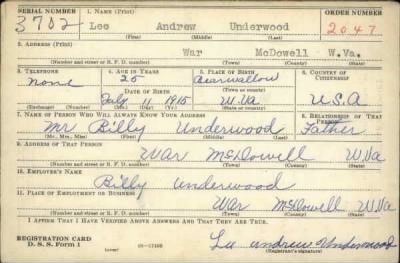 SERIAL NUMBER 1. NAME (Print) ORDER NUMBER
3702 Lee Andrew Underwood 2047
(First) (Middle) (Last)
2. ADDRESS (Print)
War McDowell W.Va.
(Number and street or R. F. D. number) (Town) (County) (State)
3. TELEPHONE 4. AGE IN YEARS 5. PLACE OF BIRTH 6. COUNTRY OF CITIZENSHIP
None 25 Bearwallow
DATE OF BIRTH (Town or county)
July 11 1915 W.Va U.S.A
(Exchange) (Number) (Mo.) (Day) (Yr.) (State or country)
7. NAME OF PERSON WHO WILL ALWAYS KNOW YOUR ADDRESS 8. RELATIONSHIP OF THAT PERSON
Mr Billy Underwood Father
(Mr., Mrs., Miss) (First) (Middle) (Last)
9. ADDRESS OF THAT PERSON
War McDowell W.Va
(Number and street or R. F. D. number) (Town) (County) (State)
10. EMPLOYER'S NAME
Billy Underwood
11. PLACE OF EMPLOYMENT OR BUSINESS
War McDowell W.Va
(Number and street or R. F. D. number) (Town) (County) (State)
I AFFIRM THAT I HAVE VERIFIED ABOVE ANSWERS AND THAT THEY ARE TRUE.
REGISTRATION CARD
D. S. S. Form 1 Lee Andrew Underwood
(Registrant's signature)